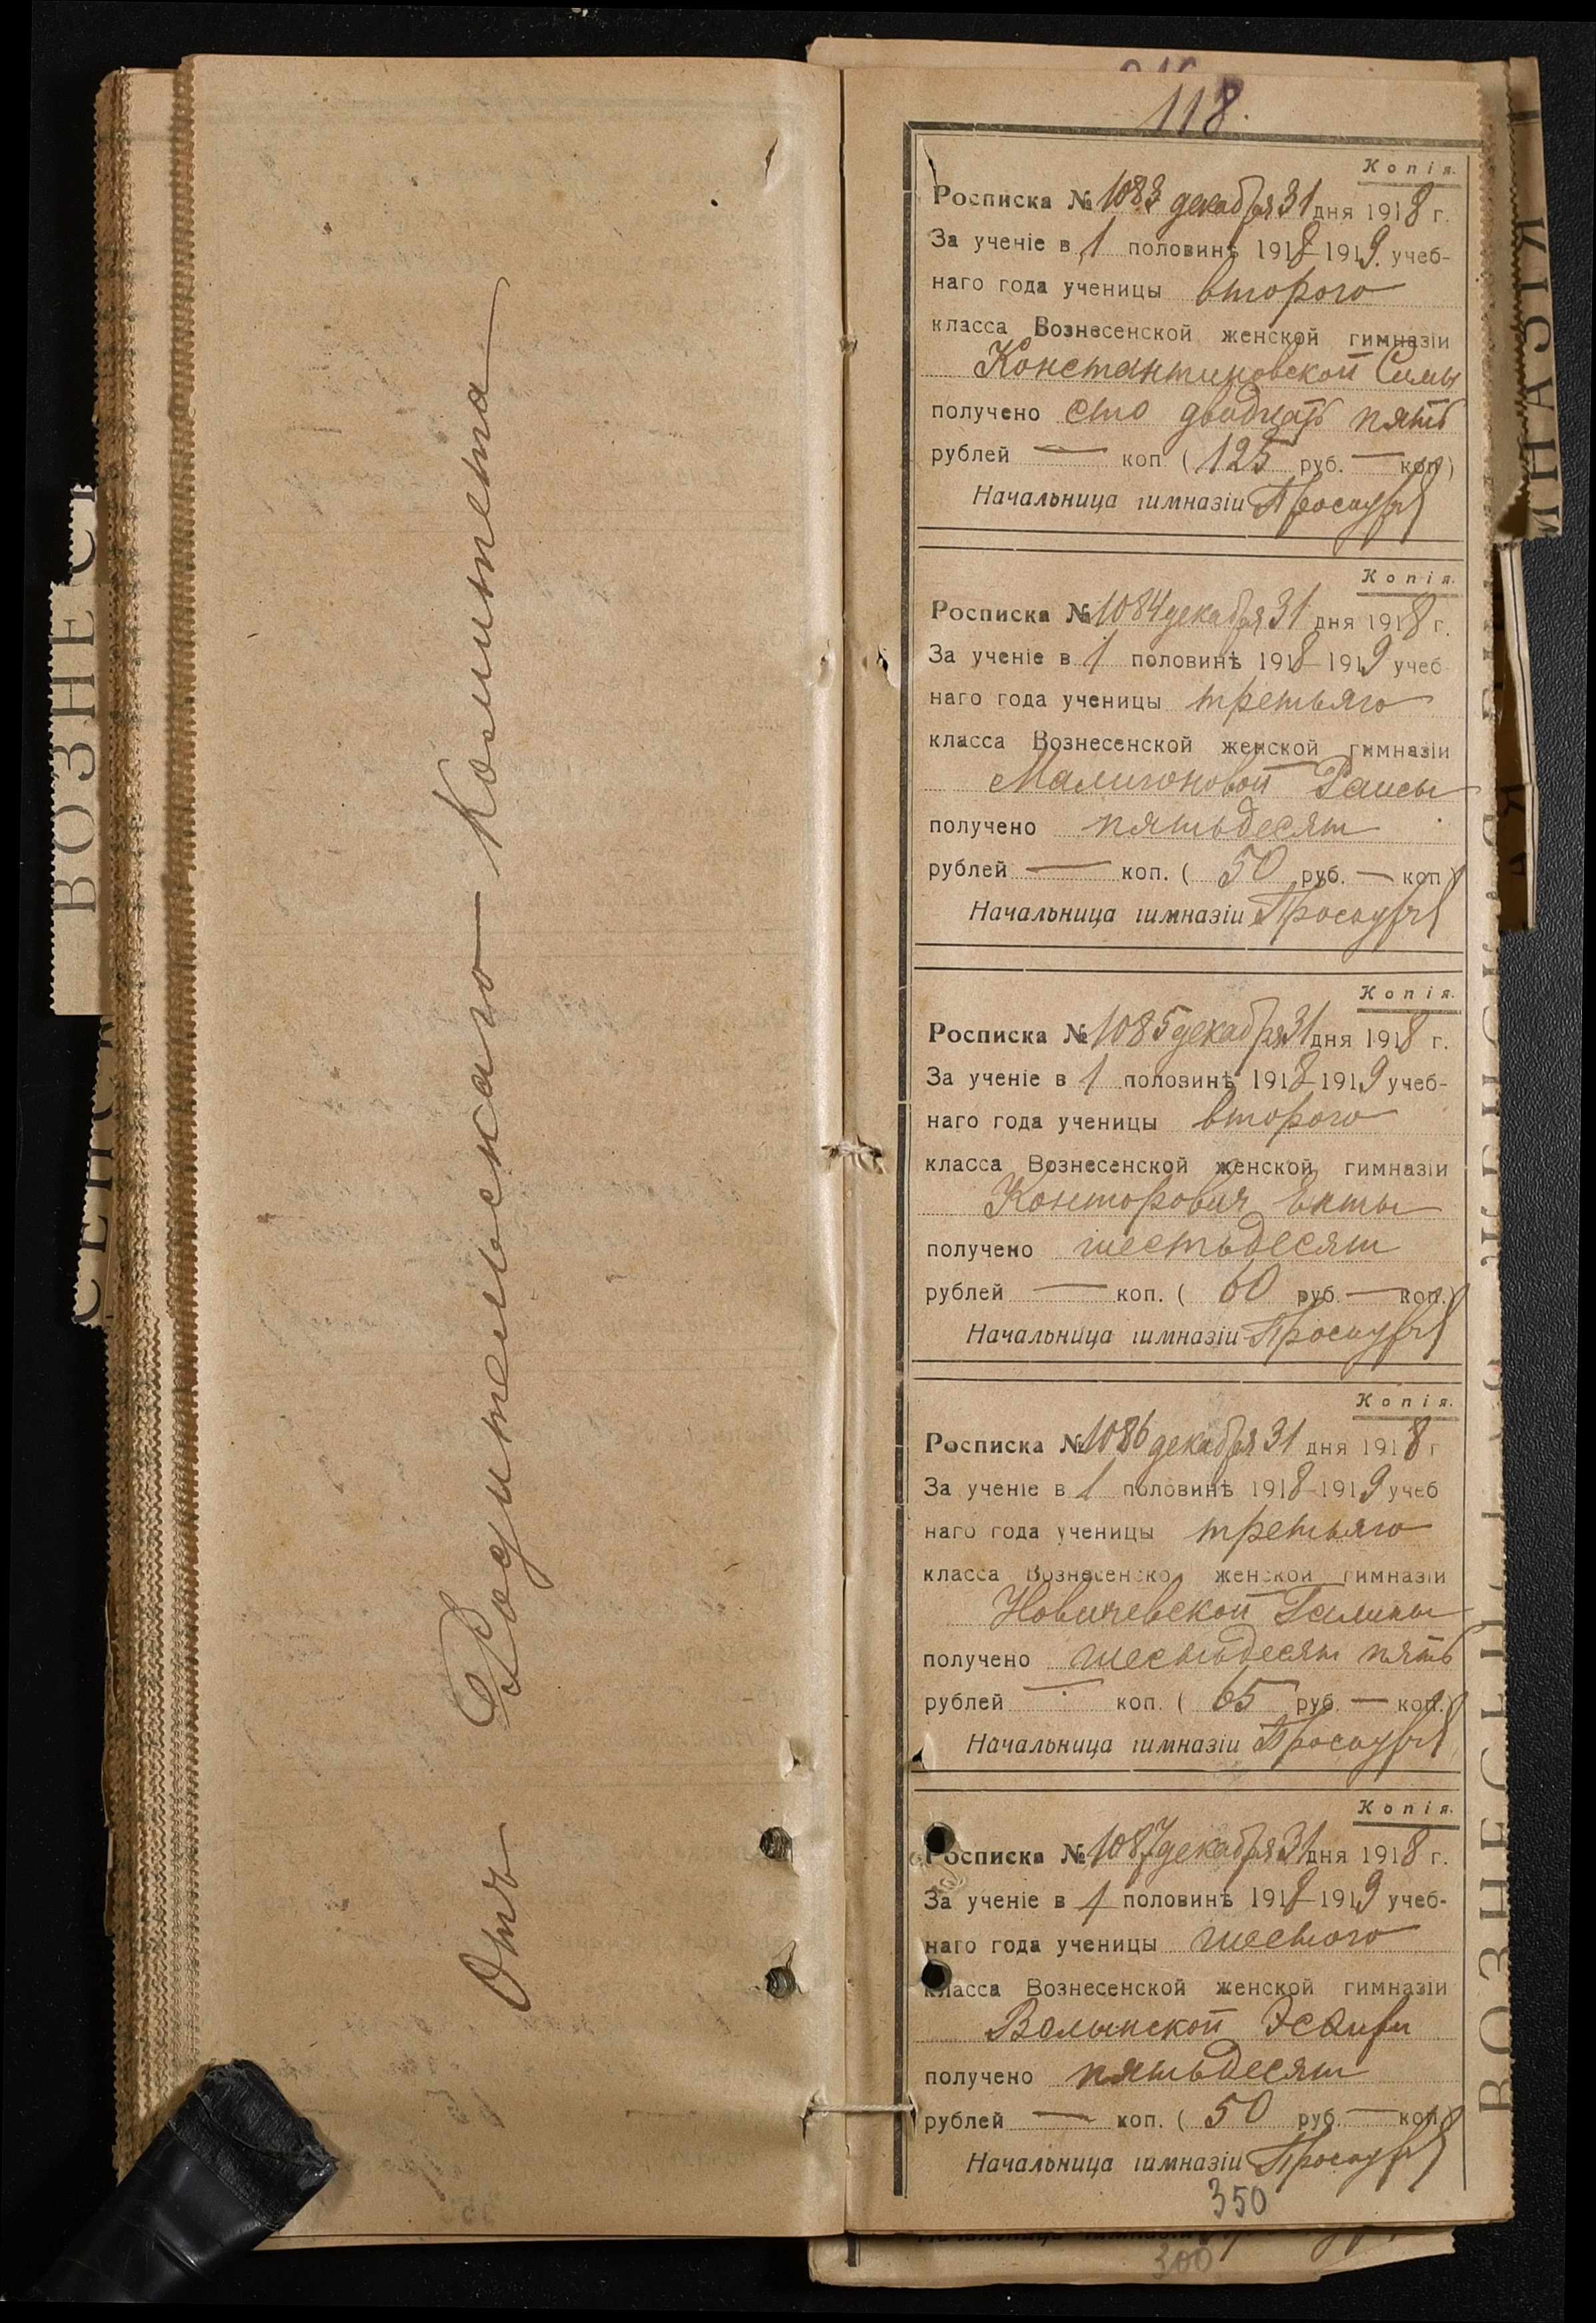 Отъ Родительскаго Комитета
118.
Копія.
Росписка № 1083 декабря 31 дня 1918 г.
За ученіе в 1 половинѣ 1918-1919. учеб-
наго года ученицы второго
класса Вознесенской женской гимназіи
Константиновской Симы
получено сто двадцать пять
рублей — коп. (125 руб. — коп)
Начальница гимназіи
Копія.
Росписка № 1084 декабря 31 дня 1918 г.
За ученіе в 1 половинѣ 1918-1919 учеб
наго года ученицы третьяго
класса Вознесенской женской гимназіи
Малигоновой Раисы
получено пятьдесят
рублей — коп. ( 50 руб. — коп)
Начальница гимназіи
Копія.
Росписка № 1085 декабря 31 дня 1918 г.
За ученіе в 1 половинѣ 1918-1919 учеб-
наго года ученицы второго
класса Вознесенской женской гимназіи
Конторович
получено шестьдесят
рублей — коп. ( 60 руб. — коп.)
Начальница гимназіи
Копія.
Росписка № 1086 декабря 31 дня 1918 г
За ученіе в 1 половинѣ 1918-1919 учеб
наго года ученицы третьяго
класса Вознесенско женской гимназіи
Новичевской Галины
получено шестьдесят пять
рублей — коп. ( 65 руб. — коп.)
Начальница гимназіи
Копія.
Росписка № 1087 декабря 31 дня 1918 г.
За ученіе в 1 половинѣ 1918-1919 учеб-
наго года ученицы шестого
класса Вознесенской женской гимназіи
Волынской Эсфири
получено пятьдесят
рублей — коп. ( 50 руб. — коп)
Начальница гимназіи
350
300